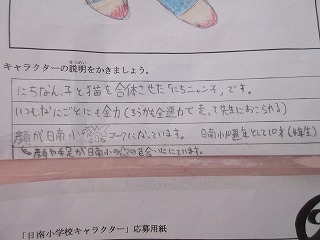 キャラクターの説明をかきましょう。
にちなんっ子と猫を合体させた「にちニャンっ子」です。
いつもなにごとにも全力(ろうかも全速力で走って先生におこられる)
顔が日南小の マークになっています。 日南小 周年として10才(4年生)
顔や手足が日南小の 色合いににています。
「日南小学校キャラクター」応募用紙